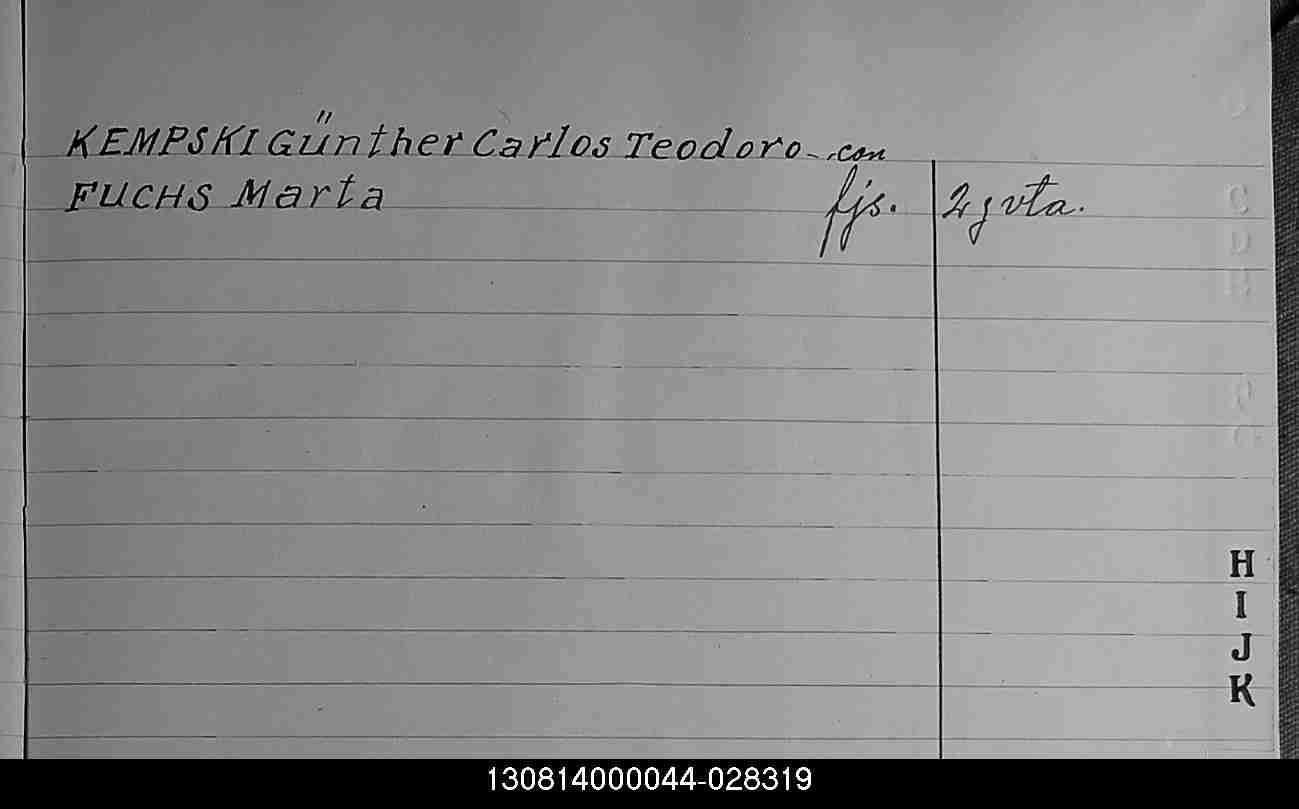 KEMPSKI Günther Carlos Teodoro - con
FUCHS Marta fjs. 2 y vta.
H
I
J
K
130814000044-028319